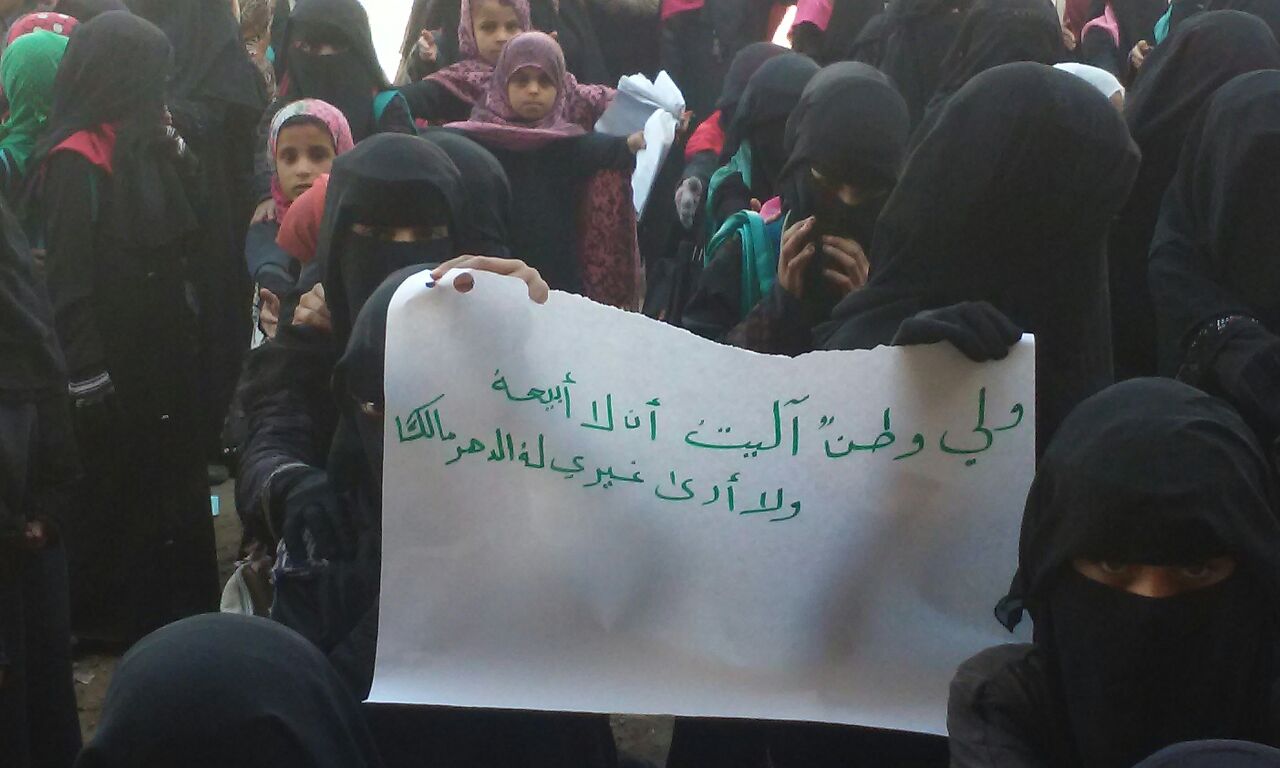 ولي وطنٌ آليتُ أن لا أبيعهُ
ولا أرى غيري لهُ الدهر مالكًا